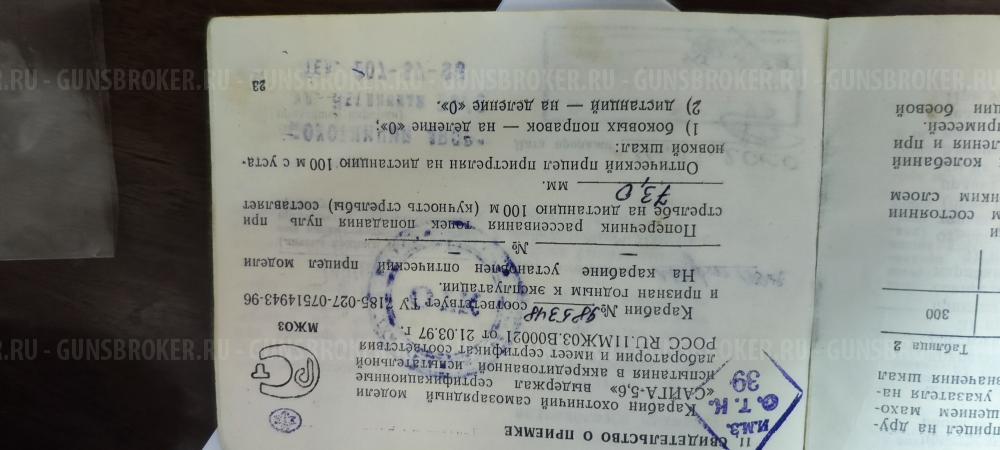 11 СВИДЕТЕЛЬСТВО О ПРИЕМКЕ
Карабин охотничий самозарядный модели
«САЙГА-5,6» выдержал сертификационные
испытания в аккредитованной испытательной
лаборатории и имеет сертификат соответствия
РОСС RU.11МЖ03.В00021 от 21.03.97 г.
МЖ03
Карабин № соответствует ТУ 7185-027-07514943-96
и признан годным к эксплуатации.
На карабине установлен оптический прицел модели
— № —
Поперечник рассеивания точек попадания пуль при
стрельбе на дистанцию 100 м (кучность стрельбы) составляет
73,0 мм.
Оптический прицел пристрелян на дистанцию 100 м с уста-
новкой шкал:
1) боковых поправок — на деление «0»;
2) дистанций — на деление «0».
23
И.М.З.
О.Т.К.
39
ТЕЛ. 207-57-
прицел на дру-
щением махо-
указателя на-
значения шкал
Таблица 2
300
—
и
м состоянии
нким слоем
колебаний
вления и при
примесей.
ции боевой
GUNSBROKER.RU - GUNSBROKER.RU - GUNSBROKER.RU - GUNSBROKER.RU
GUNSBROKER.RU - GUNSBROKER.RU - GUNSBROKER.RU - GUNSBROKER.RU